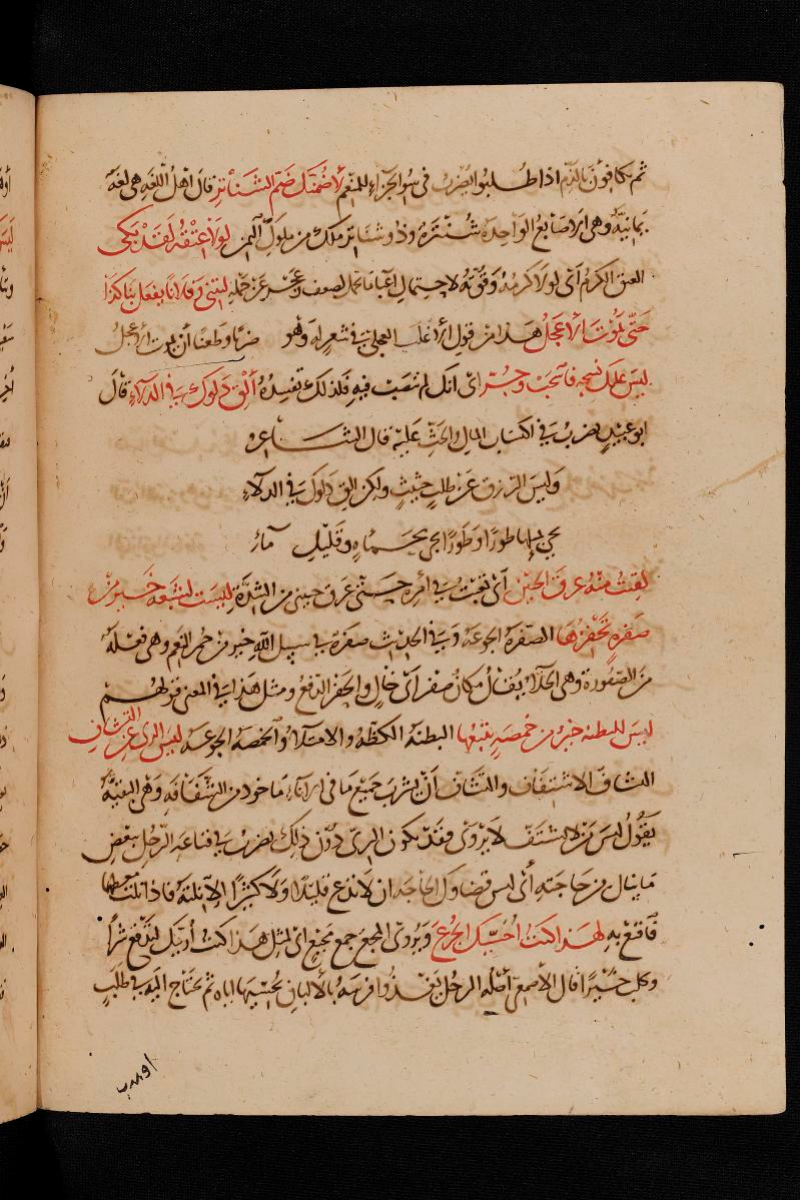 ثم يكافؤن بالذم اذا طلبوا يضرب فى سوء الجزاء للمنعم لأضمنك ضم الشناتر قال اهل اللغه هى لغة
يمانيّه وهى الاصابع الواحده شنتره وذو شناتر ملك من ملوك اليمن لولا عتقه لقد بكى
العتق الكرم اى لولا كرمه وقوته لاحتمال اعبا ما تحمل لضعف وعجز عن حمله ليتنى وفلانا يفعل بنا كذا
حتى يموت الأعجل هذا من قول الاغلب العجلى فى شعر له وهو ضربا وطعنا أن يموت الاعجل
ليس عليك نسجه فاسحب وجر اى انك لم تنصب فيه فلذلك تفسده ألق دلوك فى الدلاء قال
ابو عبيد يضرب فى اكتساب المال والحث عليه قال الشاعر
وليس الرزق عن طلب حثيث ولكن الق دلوك فى الدلاء
تجى بملئها طورا وطورا تجى بحماة وقليل ماء
لقيت منه عرق الجبين أى تعبت فى امره حتى عرق جبينى من الشدّة ليست لشبعه خير من
صفرة تحفزها الصفرة الجوعه وفى الحديث صفرة فى سبيل الله خير من حمر النعم وهى فعلة
من الصفورة وهى الخلاء يقال مكان صفر أى خال والحفز الدفع ومثل هذا فى المعنى قولهم
ليس للبطنه خير من خمصه تتبعها البطنه الكظه والامتلاء والخمصة الجوعه ليس الرى عن التشاف
التشاف الاشتفاف والتشاف أن يشرب جميع ما فى الاناء ماخوذ من الشفافه وهى البقيّة
يقول ليس من لا يشتف لا يروى فقد يكون الرى دون ذلك يضرب فى قناعه الرجل ببعض
ما ينال من حاجته أى ليس قضاوك الحاجه ان لا تدع قليلا ولا كثيرا الا نلته فاذا نلت معظمها
فاقنع به لهذا كنت أحسيك الجرع ويروى المجع جمع مجيع اى لمثل هذا كنت أربيك لتدفع شرا
وتجلب خيرا قال الأصمعى أصله الرجل يغذوا فرسه بالألبان يحسيها اياه ثم يحتاج اليه فى طلب
او هرب